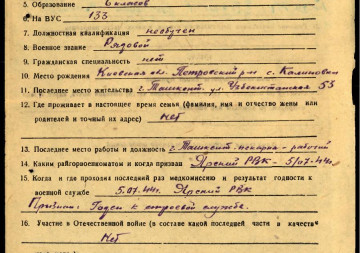 5. Образование 6 классов
6. На ВУС 133
7. Должностная квалификация необучен
8. Военное звание Рядовой
9. Гражданская специальность нет
10. Место рождения Киевская обл. Петровский р-н с. Калиновка
11. Последнее место жительства г. Ташкент. ул. Узбекистанская 53
12. Где проживает в настоящее время семья (фамилия, имя и отчество жены или
родителей и точный адрес) нет
13. Последнее место работы и должность г. Ташкент - пекарня - рабочий
14. Каким райгорвоенкоматом и когда призван Ярский РВК - 5/07-44г.
15. Когда и где проходил последний раз медкомиссию и результат годности к
военной службе 5.07.44г. Ярский РВК
Годен к строевой службе.
16. Участие в Отечественной войне (в составе какой последней части и качестве
Нет